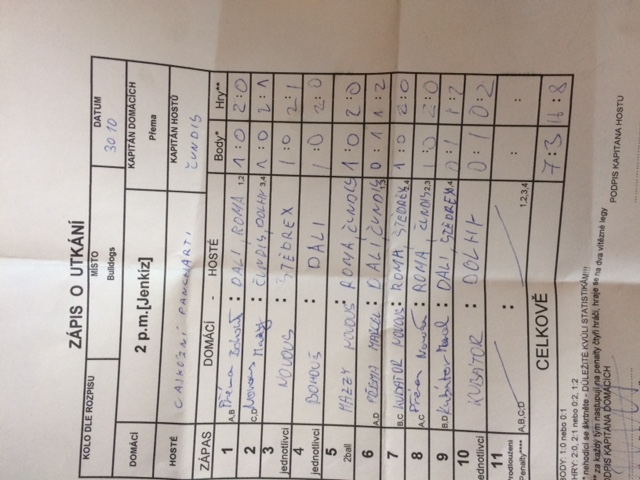 ZÁPIS O UTKÁNÍ
KOLO DLE ROZPISU MÍSTO DATUM
Bulldogs 30 10
DOMÁCÍ 2 p.m.[Jenkiz] KAPITÁN DOMÁCÍCH
Přema
HOSTÉ PANCHARTI KAPITÁN HOSTŮ
ČUNDIS
ZÁPAS DOMÁCÍ - HOSTÉ Body* Hry**
1 A,B Přéma : DALI, ROMA 1,2 1:0 2:0
2 C,D : ČUNDIS, DOLHY 3,4 1:0 2:1
3 jednotlivci : ŠTĚDREX 1:0 2:1
4 jednotlivci BOHOUŠ : DALI 1:0 2:0
5 2ball MAZZY : ROMA ČUNDIS 1:0 2:0
6 A,D PŘEMA : DALI ČUNDIS 1,3 0:1 1:2
7 B,C KUBATOR : ROMA ŠTĚDREX 2,4 1:0 2:0
8 A,C Přéma : ROMA ČUNDIS 2,3 1:0 2:0
9 B,D Kubator : DALI ŠTĚDREX 1,4 0:1 1:2
10 jednotlivci KUBATOR : DOLHY 0:1 0:2
11 Prodloužení Penalty**** A,B,C,D : 1,2,3,4 : :
CELKOVĚ 7:3 16:8
BODY: 1:0 nebo 0:1
HRY: 2:0, 2:1 nebo 0:2, 1:2
* nehodící se škrtněte - DŮLEŽITÉ KVŮLI STATISTIKÁM!!!
* za každý tým nastupují na penalty čtyři hráči, hraje se na dva vítězné legy
PODPIS KAPITÁNA DOMÁCÍCH PODPIS KAPITÁNA HOSTŮ